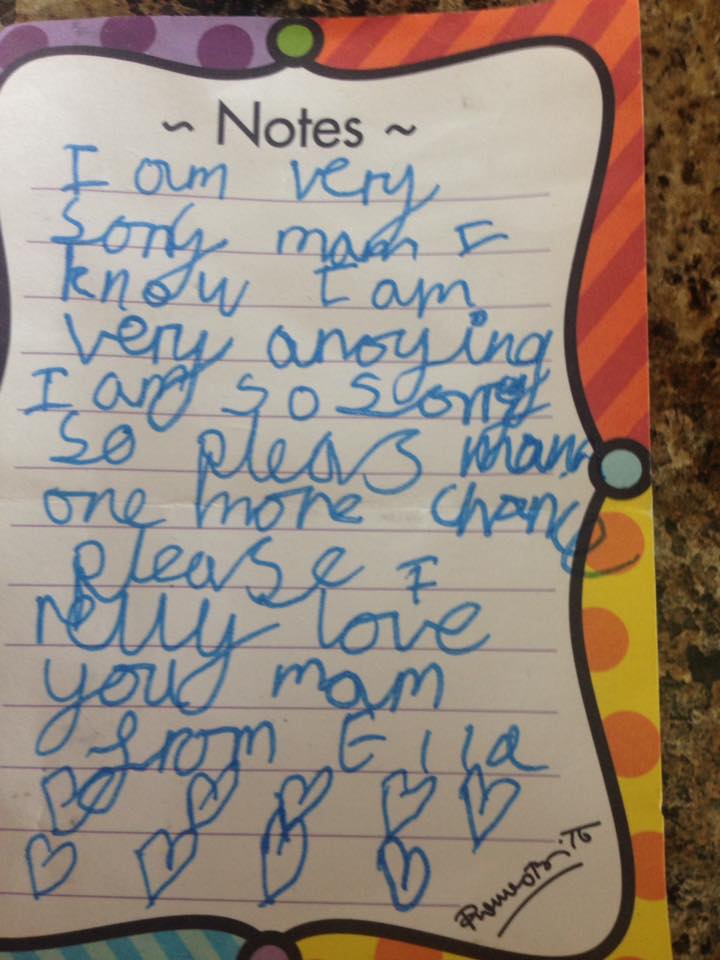 ~ Notes ~
I am very
sorry mam I
know I am
very anoying
I am so sorry
so pleas mam
one more chance
please I
relly love
you mam
from Ella
Romero Britto